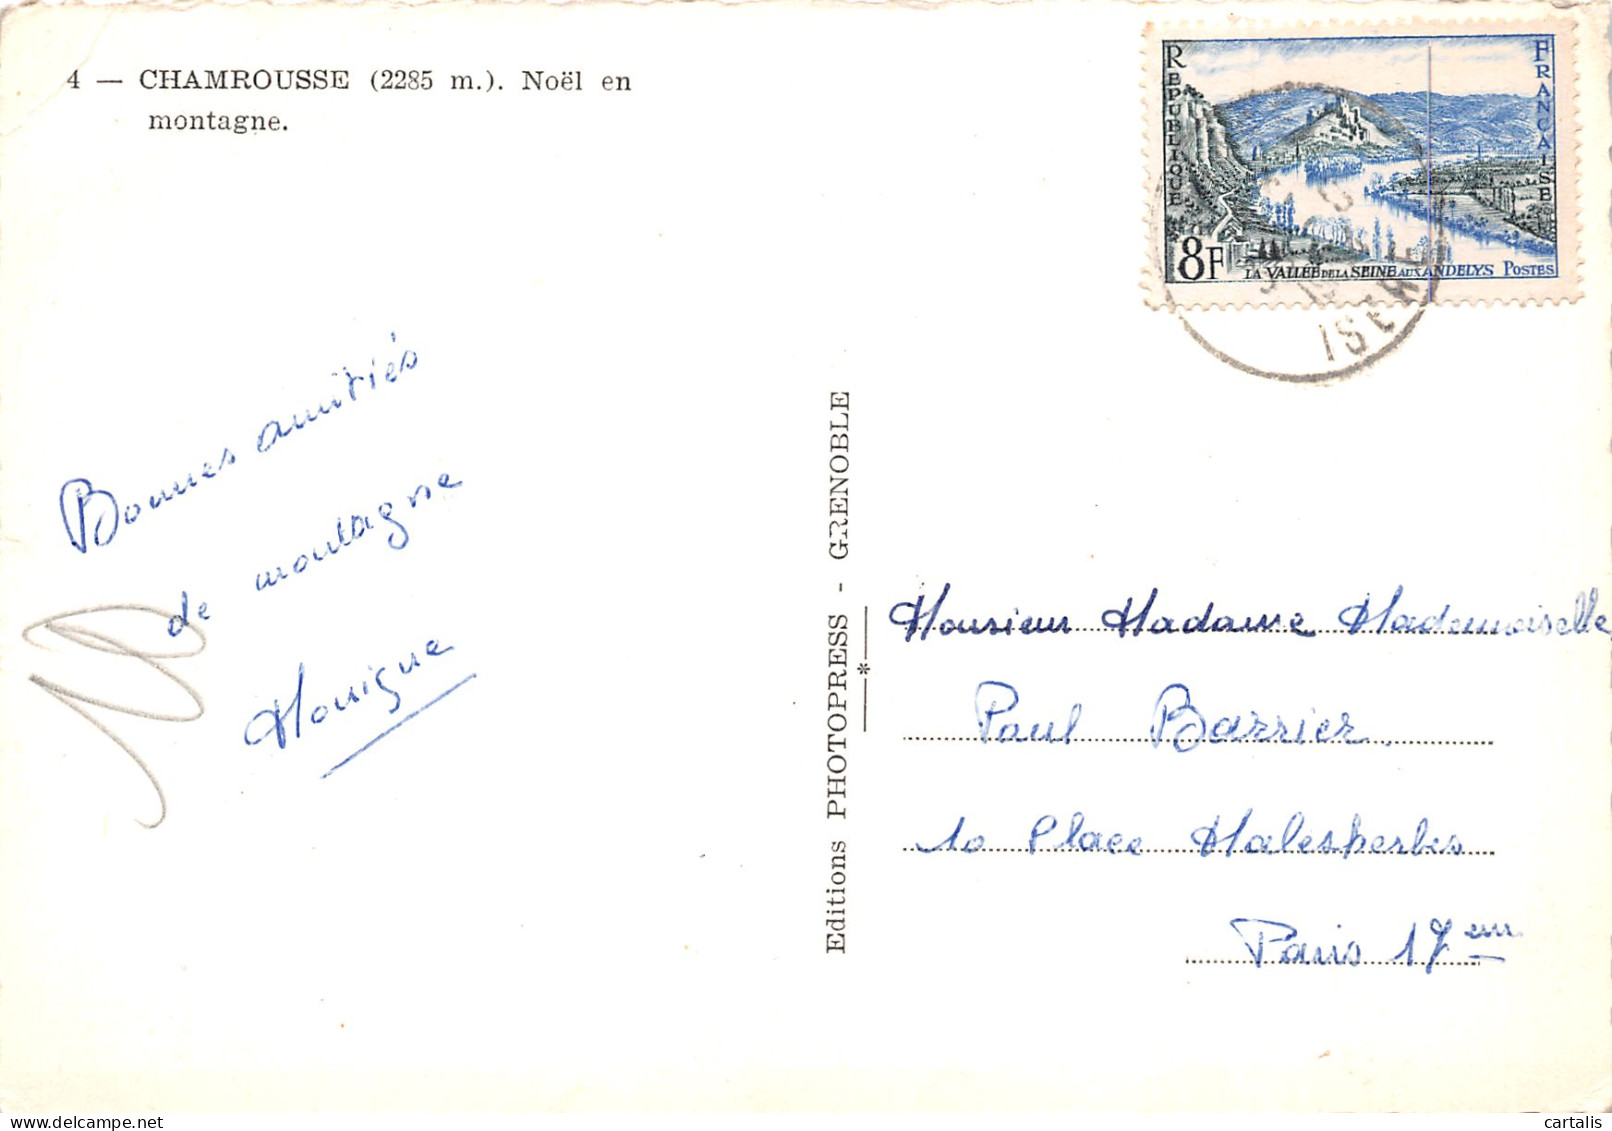 4 — CHAMROUSSE (2285 m.). Noël en
montagne.
RÉPUBLIQUE
FRANÇAISE
8F
LA VALLÉE DE LA SEINE AUX ANDELYS POSTES
ISERE
Bonnes amitiés
de montagne
Monique
Editions PHOTOPRESS - GRENOBLE
Monsieur Madame Mademoiselle
Paul Barrier.
10 Place Malesherbes
Paris 17em
cartalis